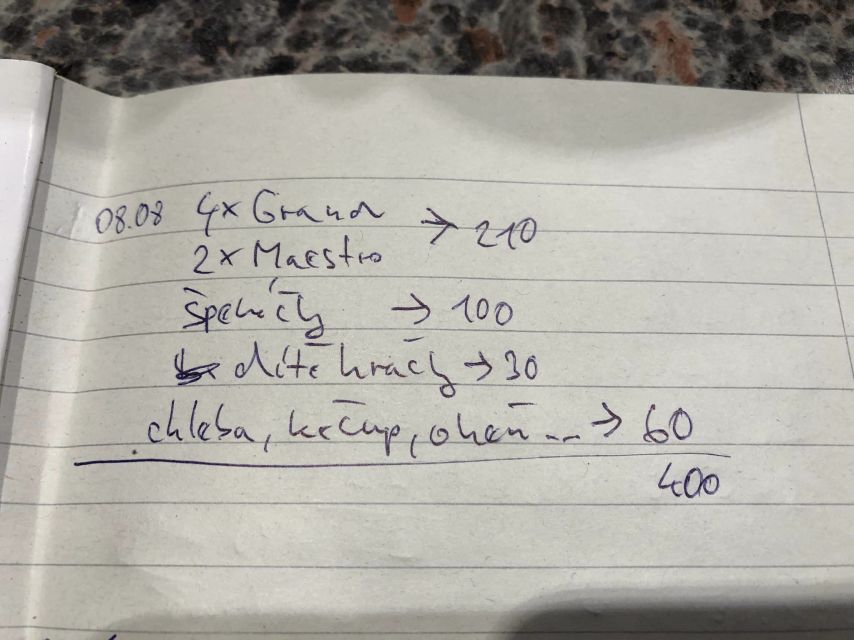 08.08 4x Grand → 210
2x Maestro
špekáčky → 100
dítě hračky → 30
chleba, kečup, oheň... → 60
400